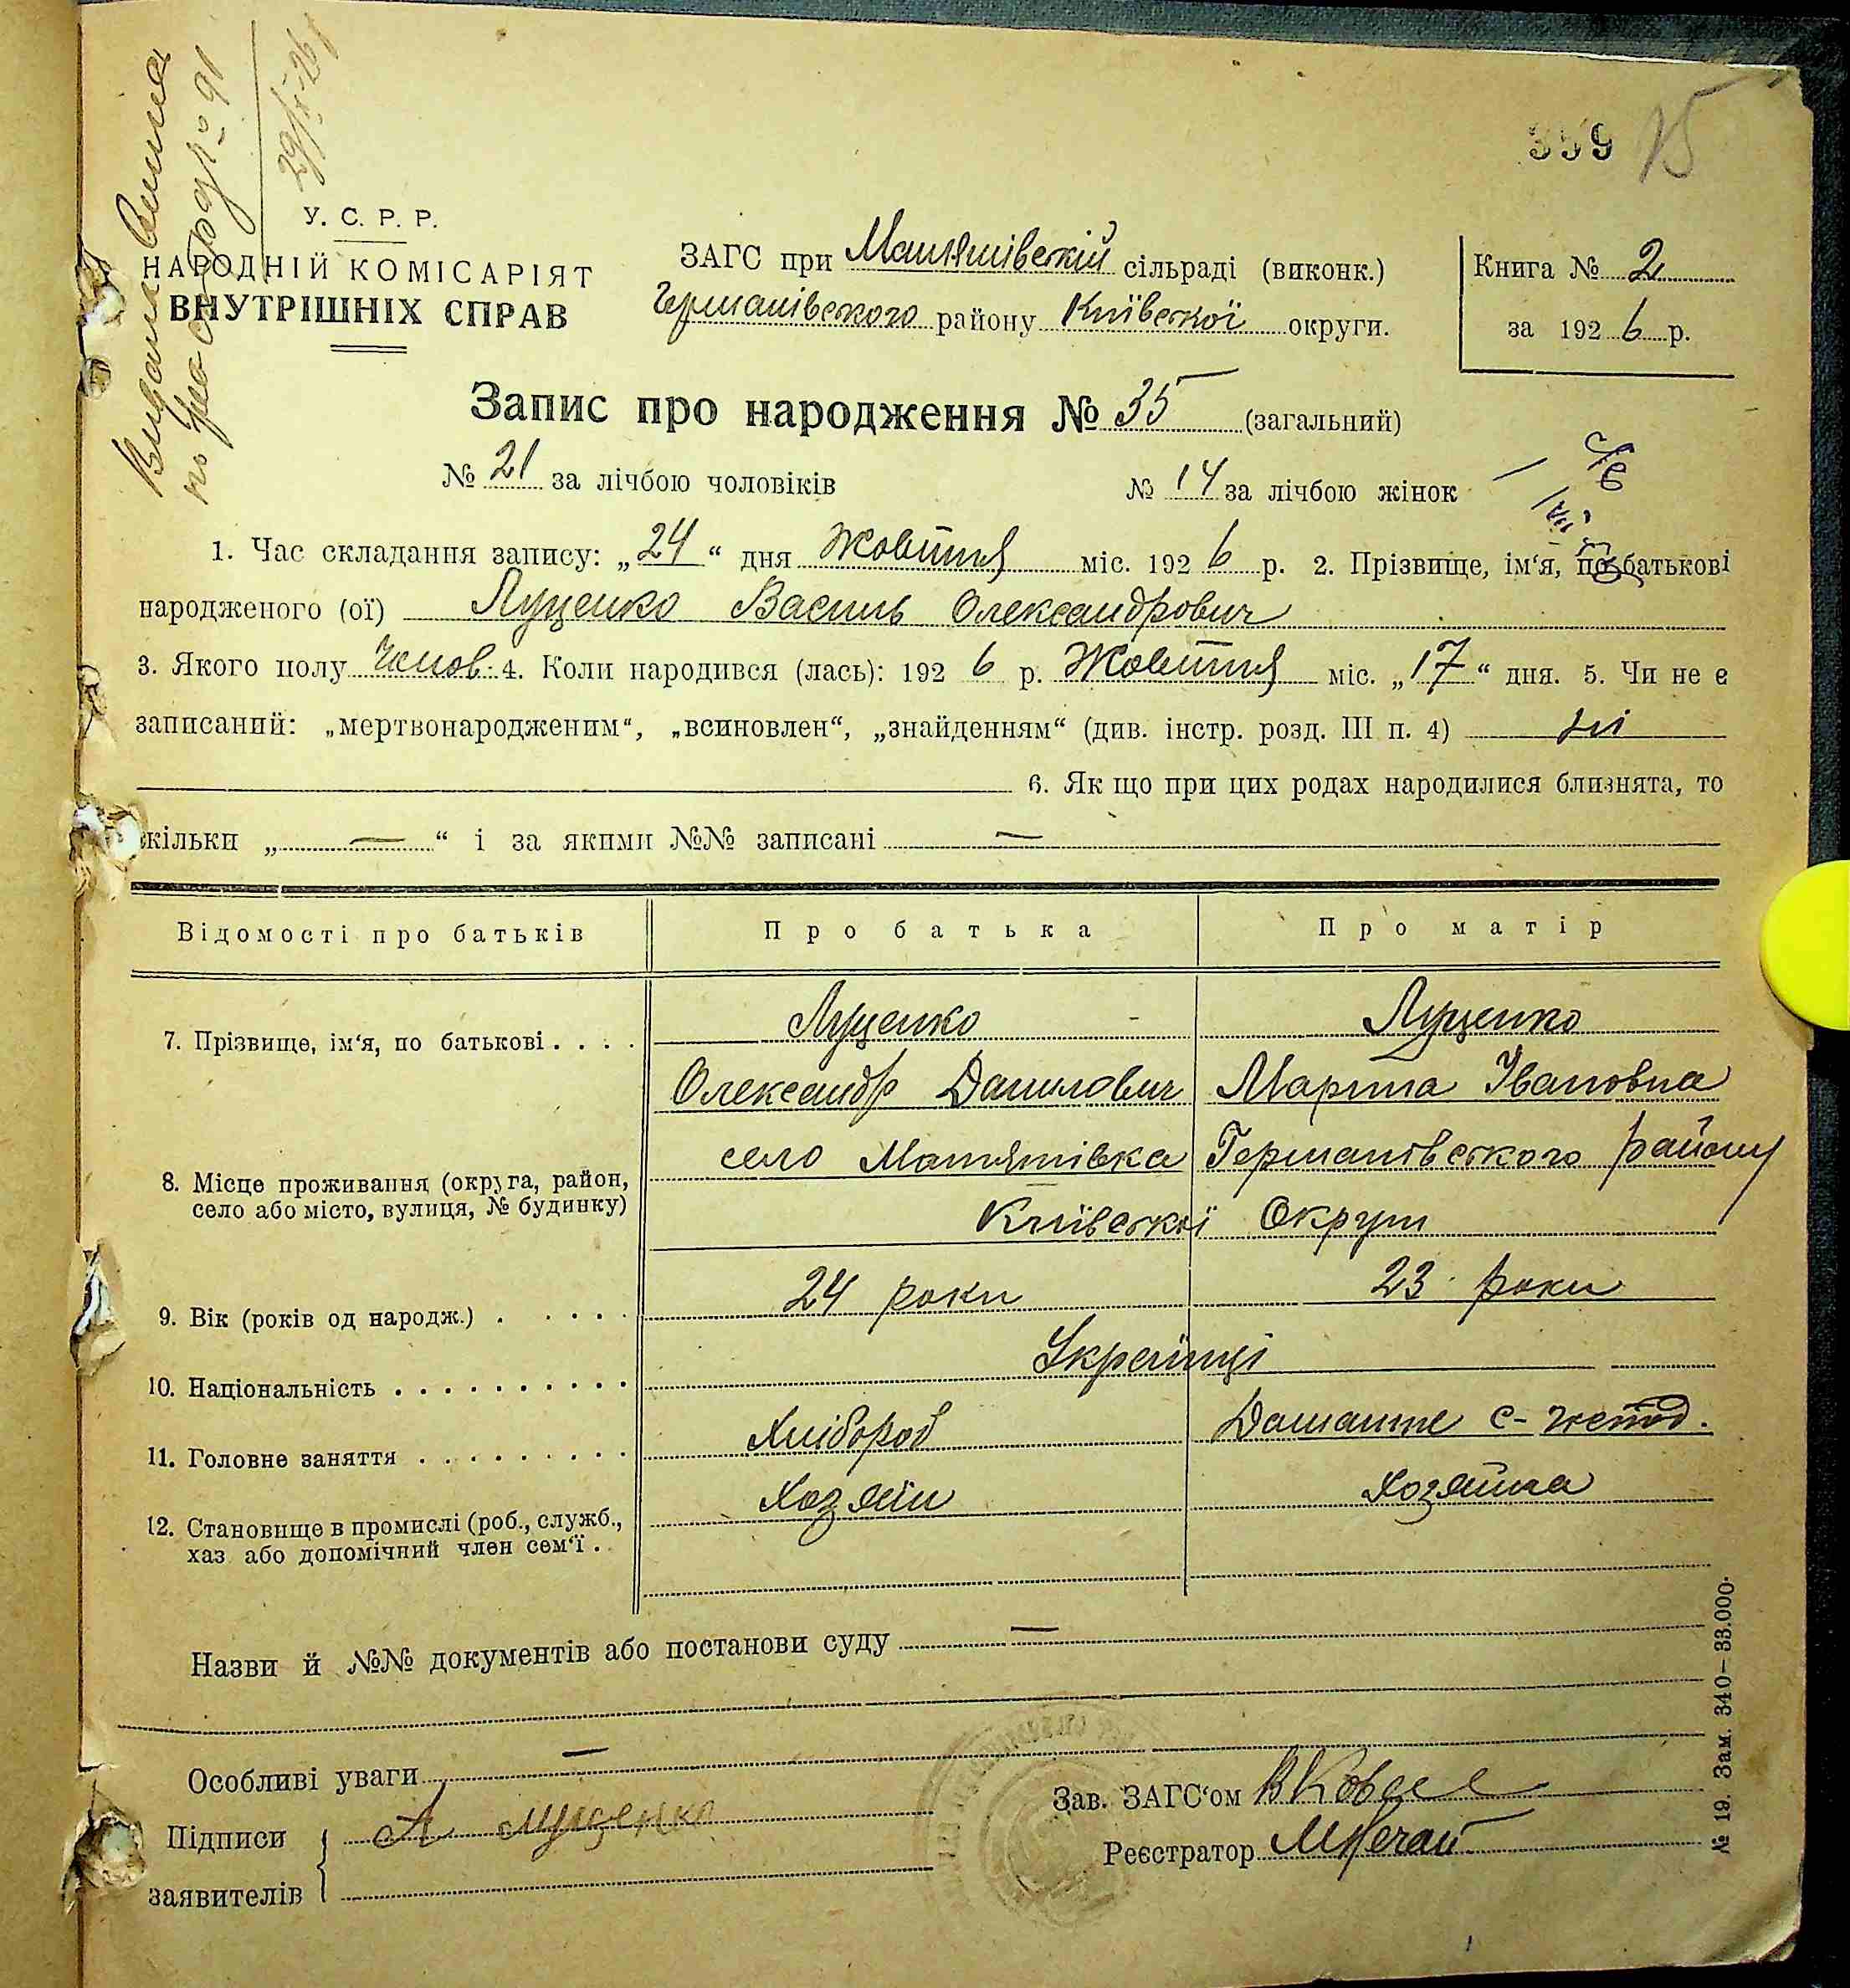 359 15
Виданий
29/X-26
У. С. Р. Р.
НАРОДНІЙ КОМІСАРІЯТ
ВНУТРІШНІХ СПРАВ
ЗАГС при Матяшівській сільраді (виконк.)
Германівського району Київської округи.
Книга № 2
за 1926 р.
Запис про народження № 35 (загальний)
№ 21 за лічбою чоловіків № 14 за лічбою жінок
1. Час складання запису: „24“ дня Жовтня міс. 1926 р. 2. Прізвище, ім‘я, по батькові
народженого (ої) Луценко Василь Олександрович
3. Якого полу Чолов. 4. Коли народився (лась): 1926 р. Жовтня міс. „17“ дня. 5. Чи не є
записаний: „мертвонародженим“, „всиновлен“, „знайденням“ (див. інстр. розд. III п. 4) ні
6. Як що при цих родах народилися близнята, то
скільки „ — “ і за якими №№ записані —
Відомості про батьків Про батька Про матір
7. Прізвище, ім‘я, по батькові . . . . Луценко Луценко
Олександр Данилович Марина Івановна
село Матяшівка Германівського району
8. Місце проживання (округа, район,
село або місто, вулиця, № будинку)
Київської Округи
9. Вік (років од народж.) . . . . . 24 роки 23 роки
10. Національність . . . . . . . . . . Українці
11. Головне заняття . . . . . . . . . Хлібороб Домашнє с-
12. Становище в промислі (роб., служб., Хозяїн Хозяйка
хаз або допомічний член сем‘ї . .
Назви й №№ документів або постанови суду —
Особливі уваги —
Підписи А Луценко
заявителів
Зав. ЗАГС‘ом
Реєстратор МНечай
№ 19. Зам. 340—33.000.